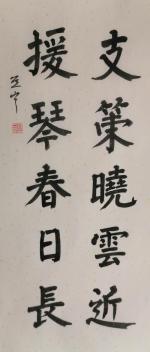 支策曉雲近
援琴春日長